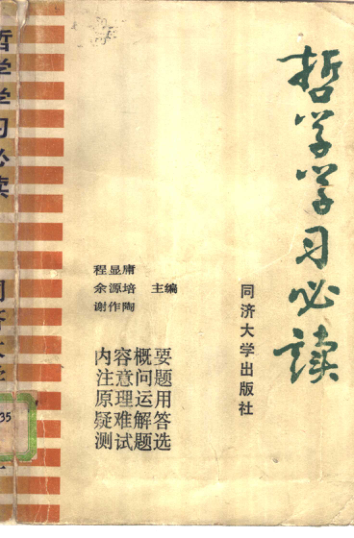 哲学学习必读
程显庸
余源培 主编
谢作陶
同济大学出版社
内容概要
注意问题
原理运用
疑难解答
测试题选
哲学学习必读
35